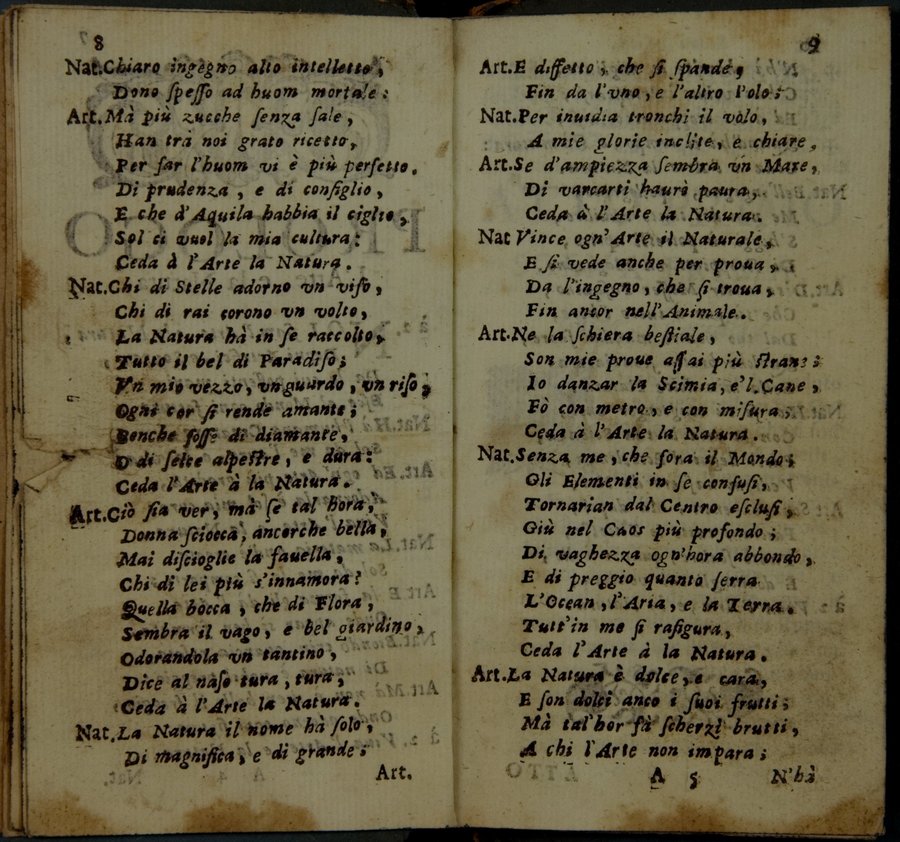 8
Nat. Chiaro ingegno alto intelletto,
Dono ſpeſſo ad huom mortale:
Art. Mà più zucche ſenza ſale,
Han trà noi grato ricetto,
Per far l'huom vi è più perfetto.
Di prudenza, e di conſiglio,
E che d'Aquila habbia il ciglio,
Sol ci vuol la mia cultura:
Ceda à l'Arte la Natura.
Nat. Chi di Stelle adorno vn viſo,
Chi di rai corono vn volto,
La Natura hà in ſe raccolto,
Tutto il bel di Paradiſo;
Vn mio vezzo, vn guardo, vn riſo,
Ogni cor ſi rende amante;
Benche foſſe di diamante,
O di ſelce alpeſtre, e dura:
Ceda l'Arte à la Natura.
Art. Ciò ſia ver, mà ſe tal hora,
Donna ſciocca, ancorche bella,
Mai diſcioglie la fauella,
Chi di lei più s'innamora?
Quella bocca, che di Flora,
Sembra il vago, e bel giardino,
Odorandola vn tantino,
Dice al naſo tura, tura,
Ceda à l'Arte la Natura.
Nat. La Natura il nome hà ſolo,
Di magnifica, e di grande;
Art.
9
Art. E diffetto, che ſi ſpande,
Fin da l'vno, e l'altro Polo:
Nat. Per inuidia tronchi il volo,
A mie glorie inclite, e chiare,
Art. Se d'ampiezza ſembra vn Mare,
Di varcarti haurò paura,
Ceda à l'Arte la Natura.
Nat Vince ogn'Arte il Naturale,
E ſi vede anche per proua,
Da l'ingegno, che ſi troua,
Fin ancor nell'Animale.
Art. Ne la ſchiera beſtiale,
Son mie proue aſſai più ſtrane:
Io danzar la Scimia, e'l Cane,
Fò con metro, e con miſura,
Ceda à l'Arte la Natura.
Nat. Senza me, che fora il Mondo;
Gli Elementi in ſe confuſi,
Tornarian dal Centro eſcluſi,
Giù nel Caos più profondo;
Di vaghezza ogn'hora abbondo,
E di preggio quanto ſerra
L'Ocean, l'Aria, e la Terra.
Tutt'in me ſi rafigura,
Ceda l'Arte à la Natura.
Art. La Natura è dolce, e cara,
E ſon dolci anco i ſuoi frutti;
Mà tal'hor fà ſcherzi brutti,
A chi l'Arte non impara;
A 5 N'hà